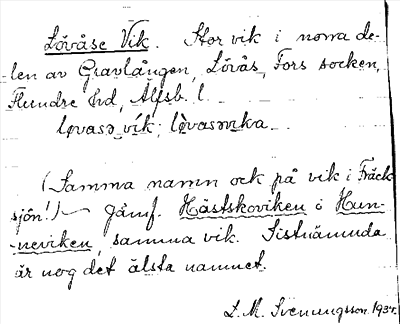 Lövåse Vik. Stor vik i norra de-
-len av Gravlången, Lövås, Fors socken,
Flundre hd, Älfsb. l.
løvasə vík; lø̀vasəvıka
(Samma namn ock på vik i Fräck
sjön!) – Jämf. Hästskoviken o Hun-
-neviken, samma vik. Sistnämnda
är nog det älsta namnet.
L. M. Svenungsson. 1934.